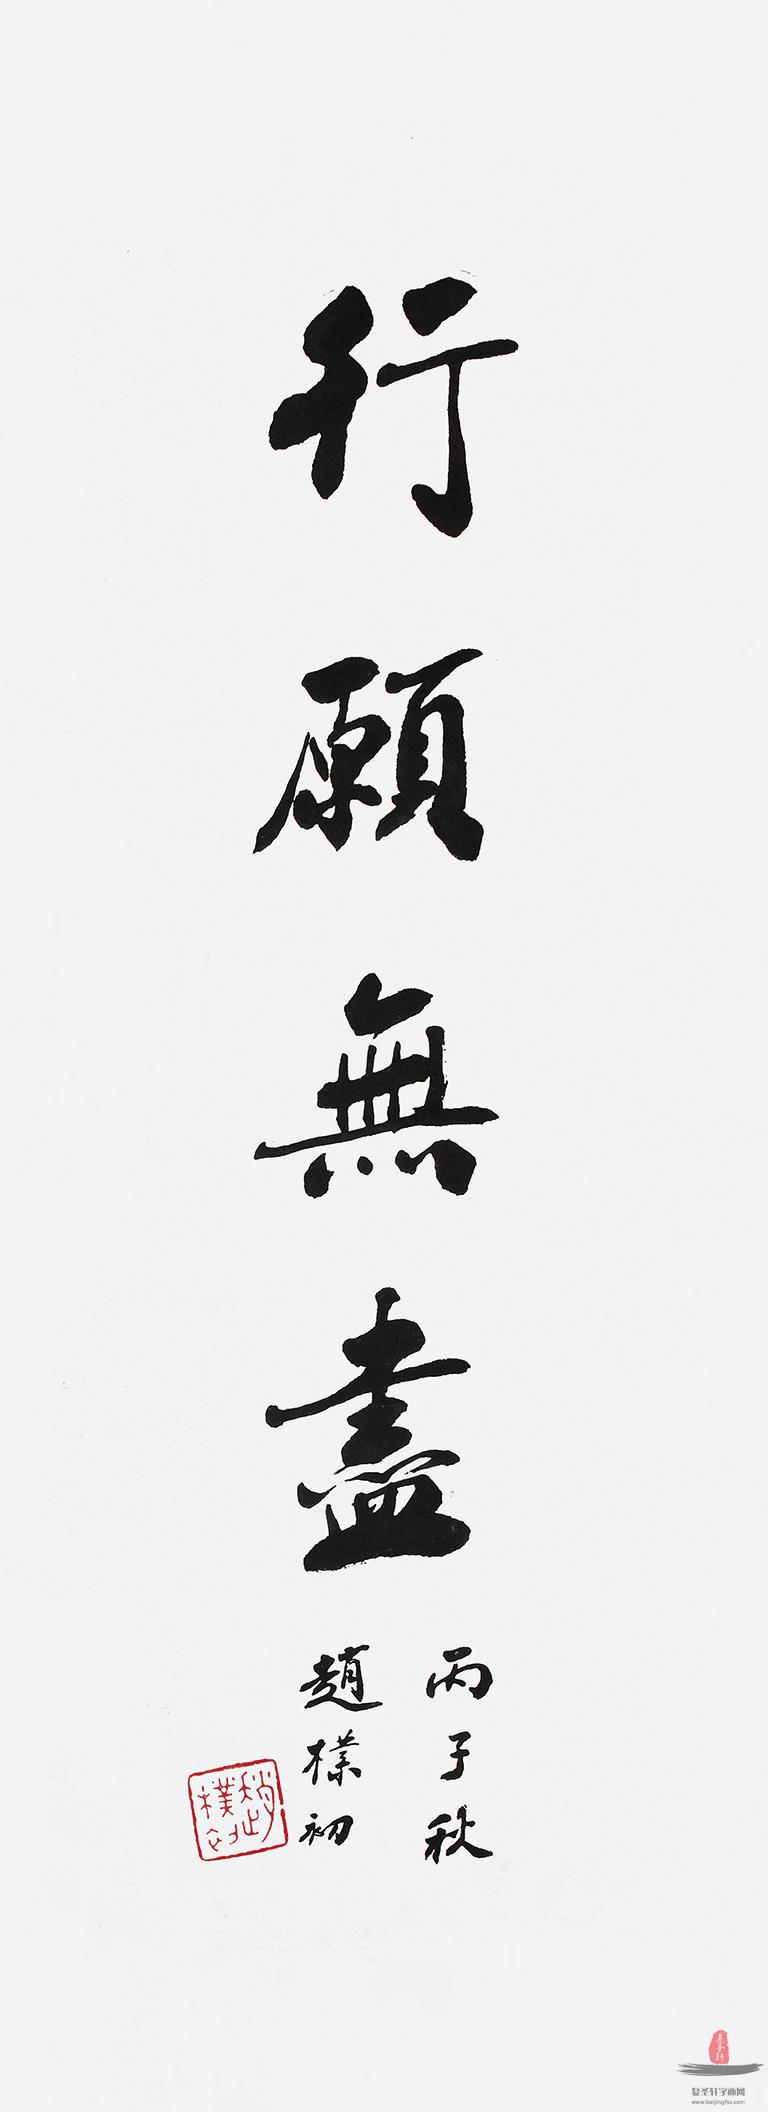 行願無盡
丙子秋
趙樸初
趙樸初
复圣轩字画网
www.beijingfsx.com